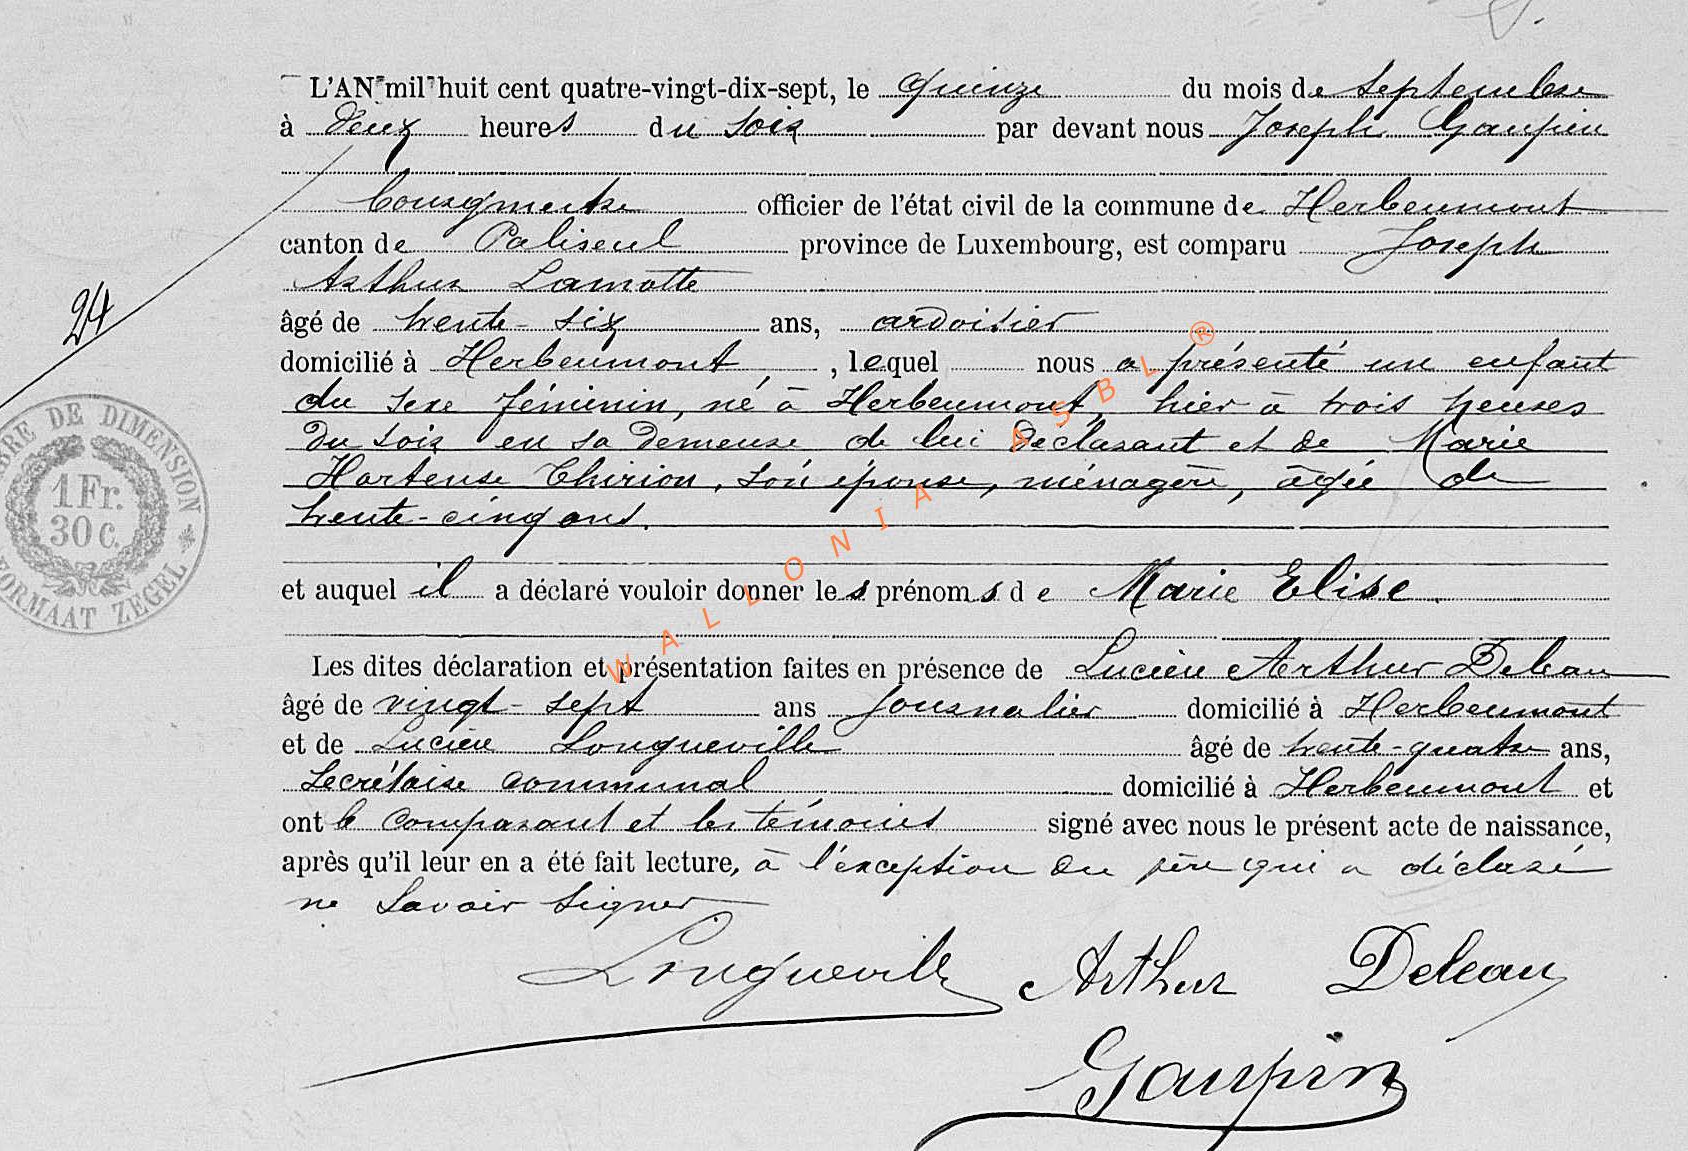 L'AN mil huit cent quatre-vingt-dix-sept, le quinze du mois de Septembre
à deux heures du soir par devant nous Joseph Gaupin
Bourgmestre officier de l'état civil de la commune de Herbeumont
canton de Paliseul province de Luxembourg, est comparu Joseph
Arthur Lamotte
âgé de trente-six ans, ardoisier
domicilié à Herbeumont, lequel nous a présenté un enfant
du sexe féminin, né à Herbeumont, hier à trois heures
du soir en sa demeure de lui déclarant et de Marie
Hortense Thirion, son épouse, ménagère, âgée de
trente-cinq ans.
et auquel il a déclaré vouloir donner les prénoms de Marie Elise.
Les dites déclaration et présentation faites en présence de Lucien Arthur Deleau
âgé de vingt-sept ans journalier domicilié à Herbeumont
et de Lucien Longueville âgé de trente-quatre ans,
Secrétaire communal domicilié à Herbeumont et
ont le comparant et les témoins signé avec nous le présent acte de naissance,
après qu'il leur en a été fait lecture, à l'exception du père qui a déclaré
ne savoir signer
Longueville Arthur Deleau
Gaupin
24
TIMBRE DE DIMENSION
1 Fr.
30 C.
FORMAAT ZEGEL
WALLONIA ASBL ®